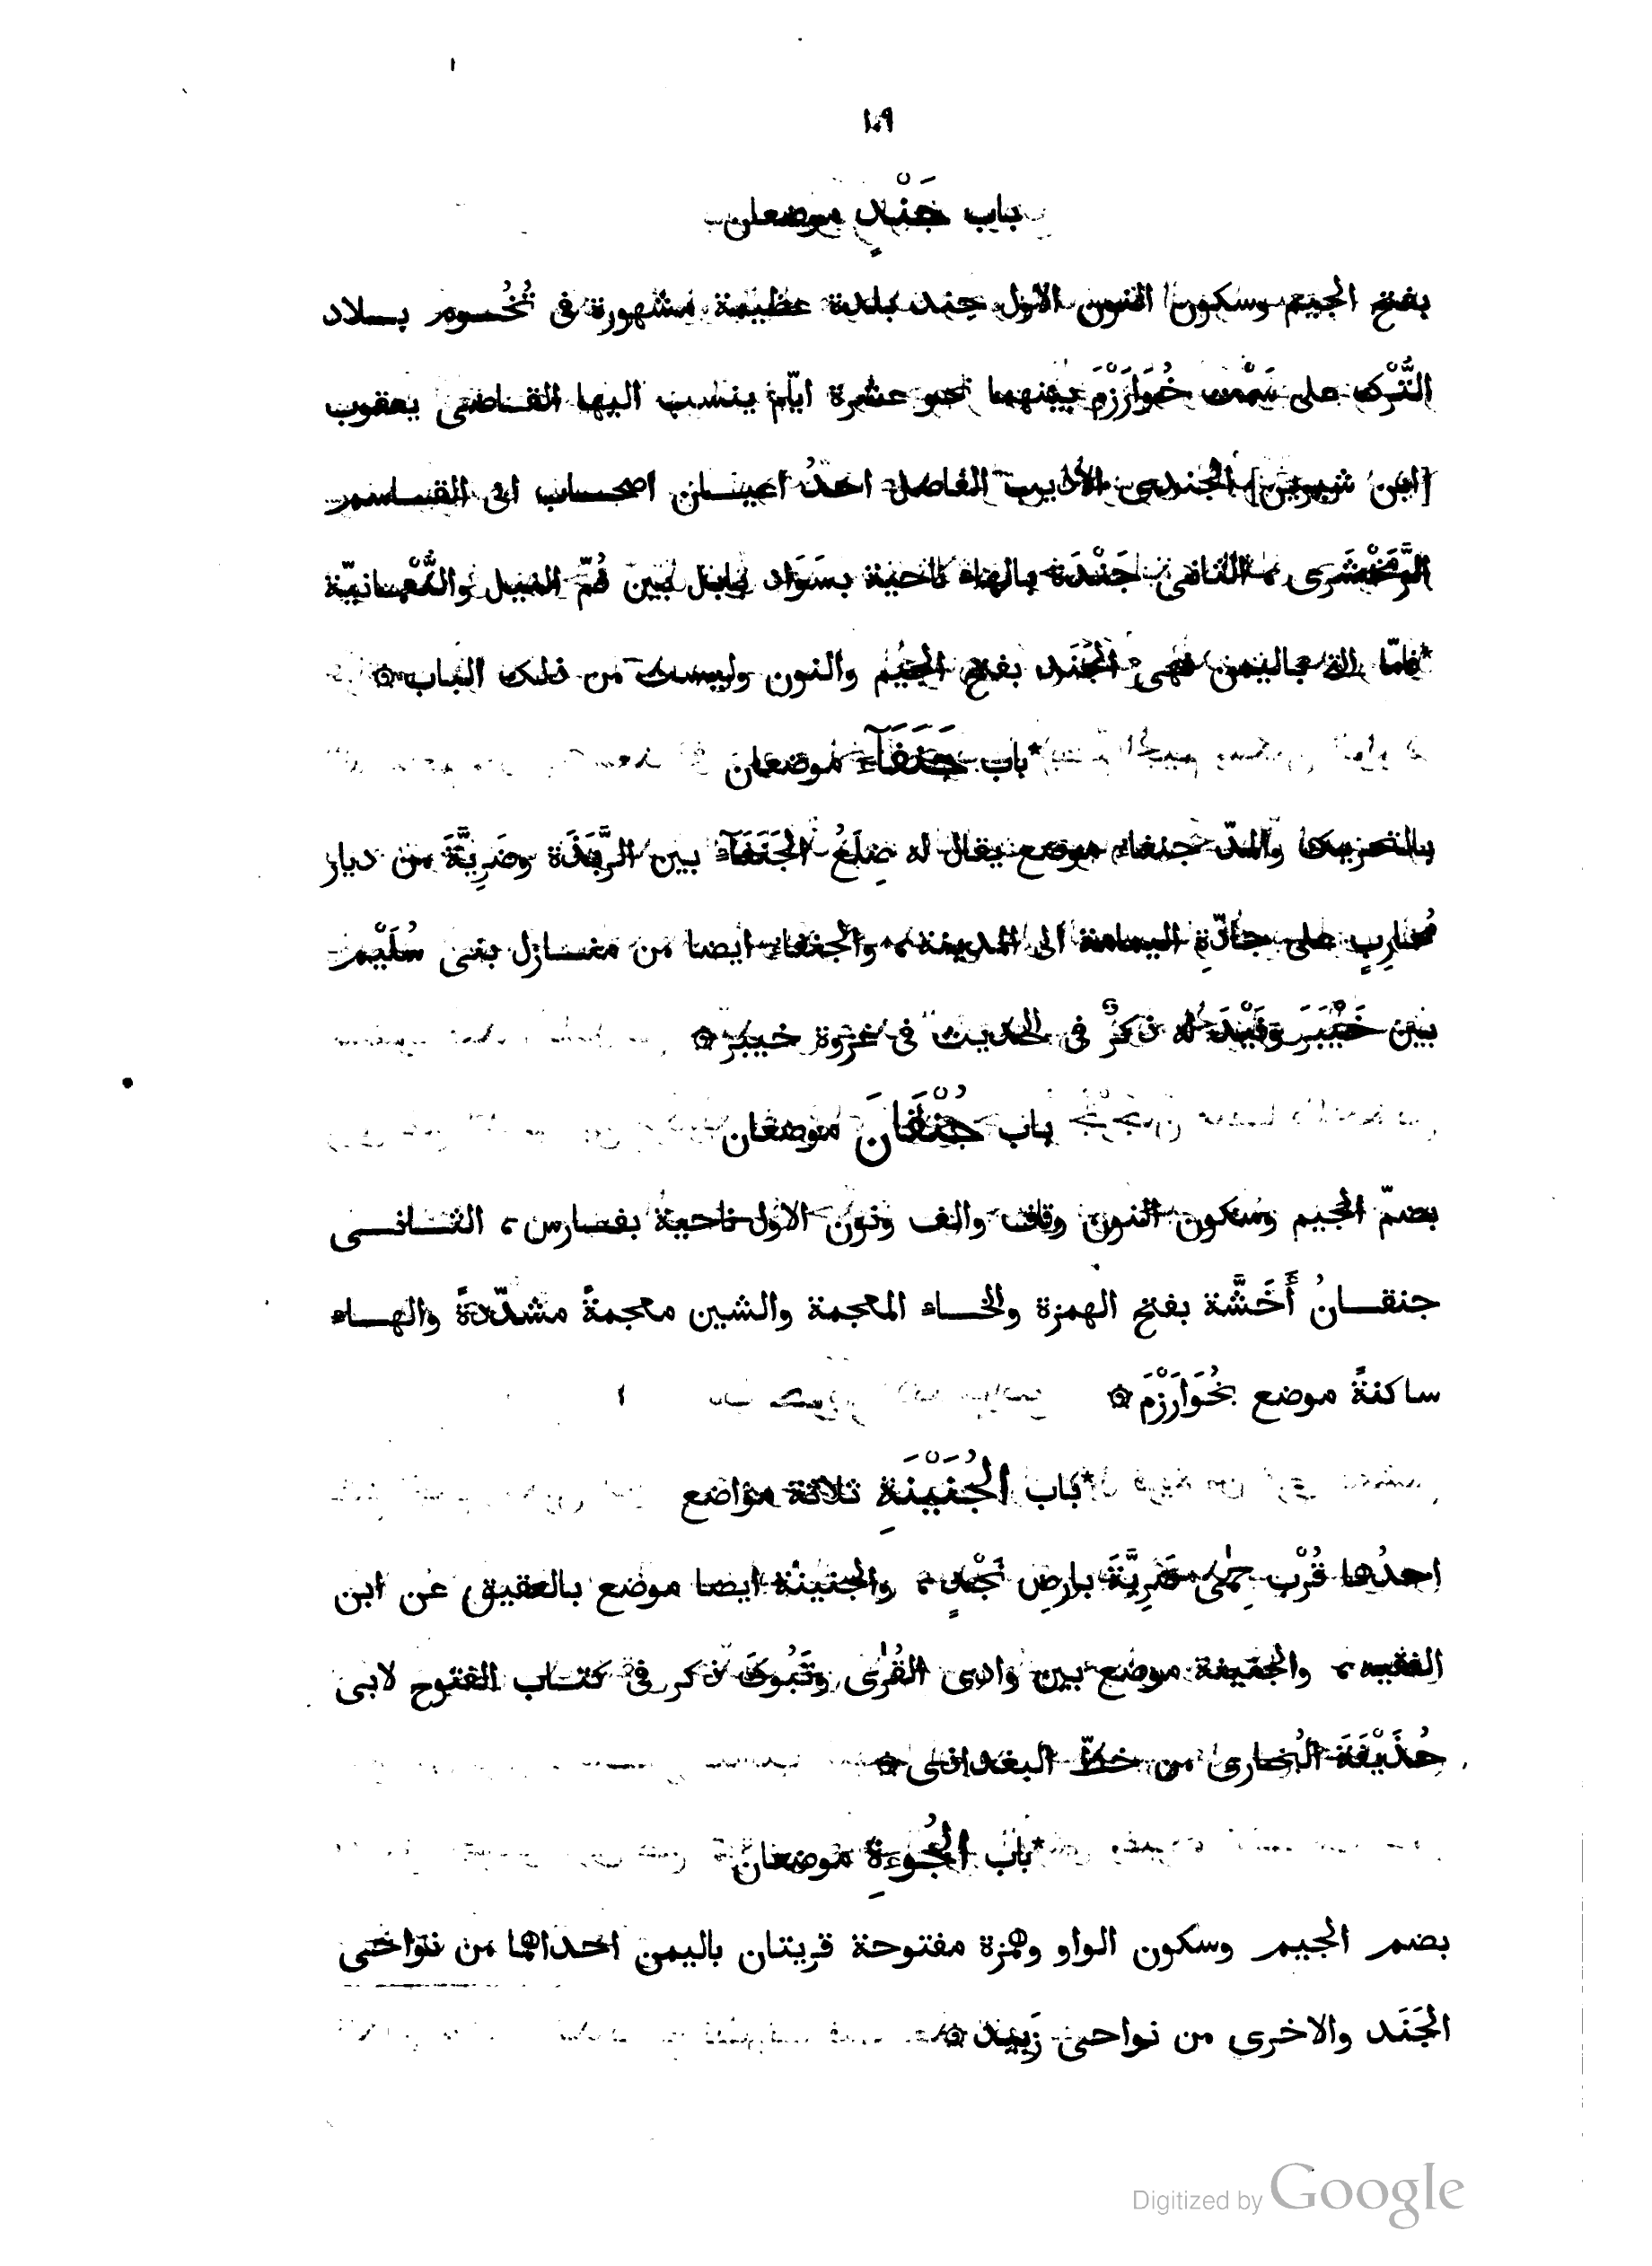 ١٠٩
باب جَنْدٍ موضعان
بفتح الجيم وسكون النون الاول جند بلدة عظيمة مشهورة فى تُخُوم بلاد
التُّرْك على سَمْت خُوَارَزْمَ بينهما نحو عشرة ايّام ينسب اليها القاضى يعقوب
[ابن شيرين] الجندى الأديب الفاضل احدُ اعيان اصحاب ابى القاسم
الزَّمَخْشَرى، الثانى جَنْدَة بالهاء ناحية بسَوَاد بابل بين فُمّ النيل والنُّعْمانيّة
*فامّا التى باليمن فهى الجَنَد بفتح الجيم والنون وليست من ذلك الباب ۞
*باب جَنَفَآءَ موضعان
بالتحريك والمدّ جنفاء موضع يقال له ضِلَعُ الجَنَفَآء بين الرَّبَذَة وضَرِيَّةَ من ديار
مُحارِبٍ على جادّةِ اليمامة الى المدينة، والجنفاء ايضا من منازل بنى سُلَيْم
بين خَيْبَرَ وفَيْدَ له ذكرٌ فى الحديث فى غزوة خيبر ۞
باب جُنْقَانَ موضعان
بضمّ الجيم وسكون النون وقاف والف ونون الاول ناحية بفارس، الثانى
جنقانُ أَخَشَّة بفتح الهمزة والخاء المعجمة والشين معجمةً مشدّدةً والهاء
ساكنةً موضع بخُوَارَزْمَ ۞
*باب الجُنَيْنَةِ ثلاثة مواضع
احدُها قُرْب حِمٰى ضَرِيَّةَ بارضِ نَجْدٍ، والجنينة ايضا موضع بالعقيق عن ابن
الفقيه، والجنينة موضع بين وادى القُرٰى وتَبُوكَ ذكر فى كتاب الفتوح لابى
حُذَيْفَةَ البُخارى من خطّ البغدادى ۞
*باب الجُوءَةِ موضعان
بضم الجيم وسكون الواو وهمزة مفتوحة قريتان باليمن احداهما من نواحى
الجَنَد والاخرى من نواحى زَبِيد ۞
Digitized by Google